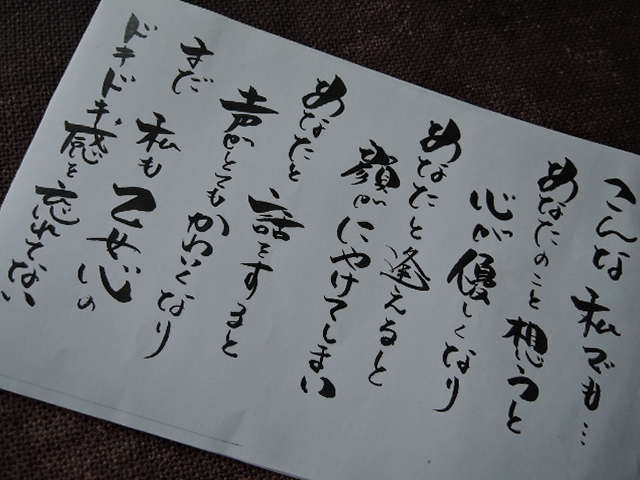 こんな私でも…
あなたのこと想うと
心が優しくなり
あなたと逢えると
顔がにやけてしまい
あなたと話をすると
声がとてもかわいくなり
まだ私も乙女心の
ドキドキ感を忘れてない